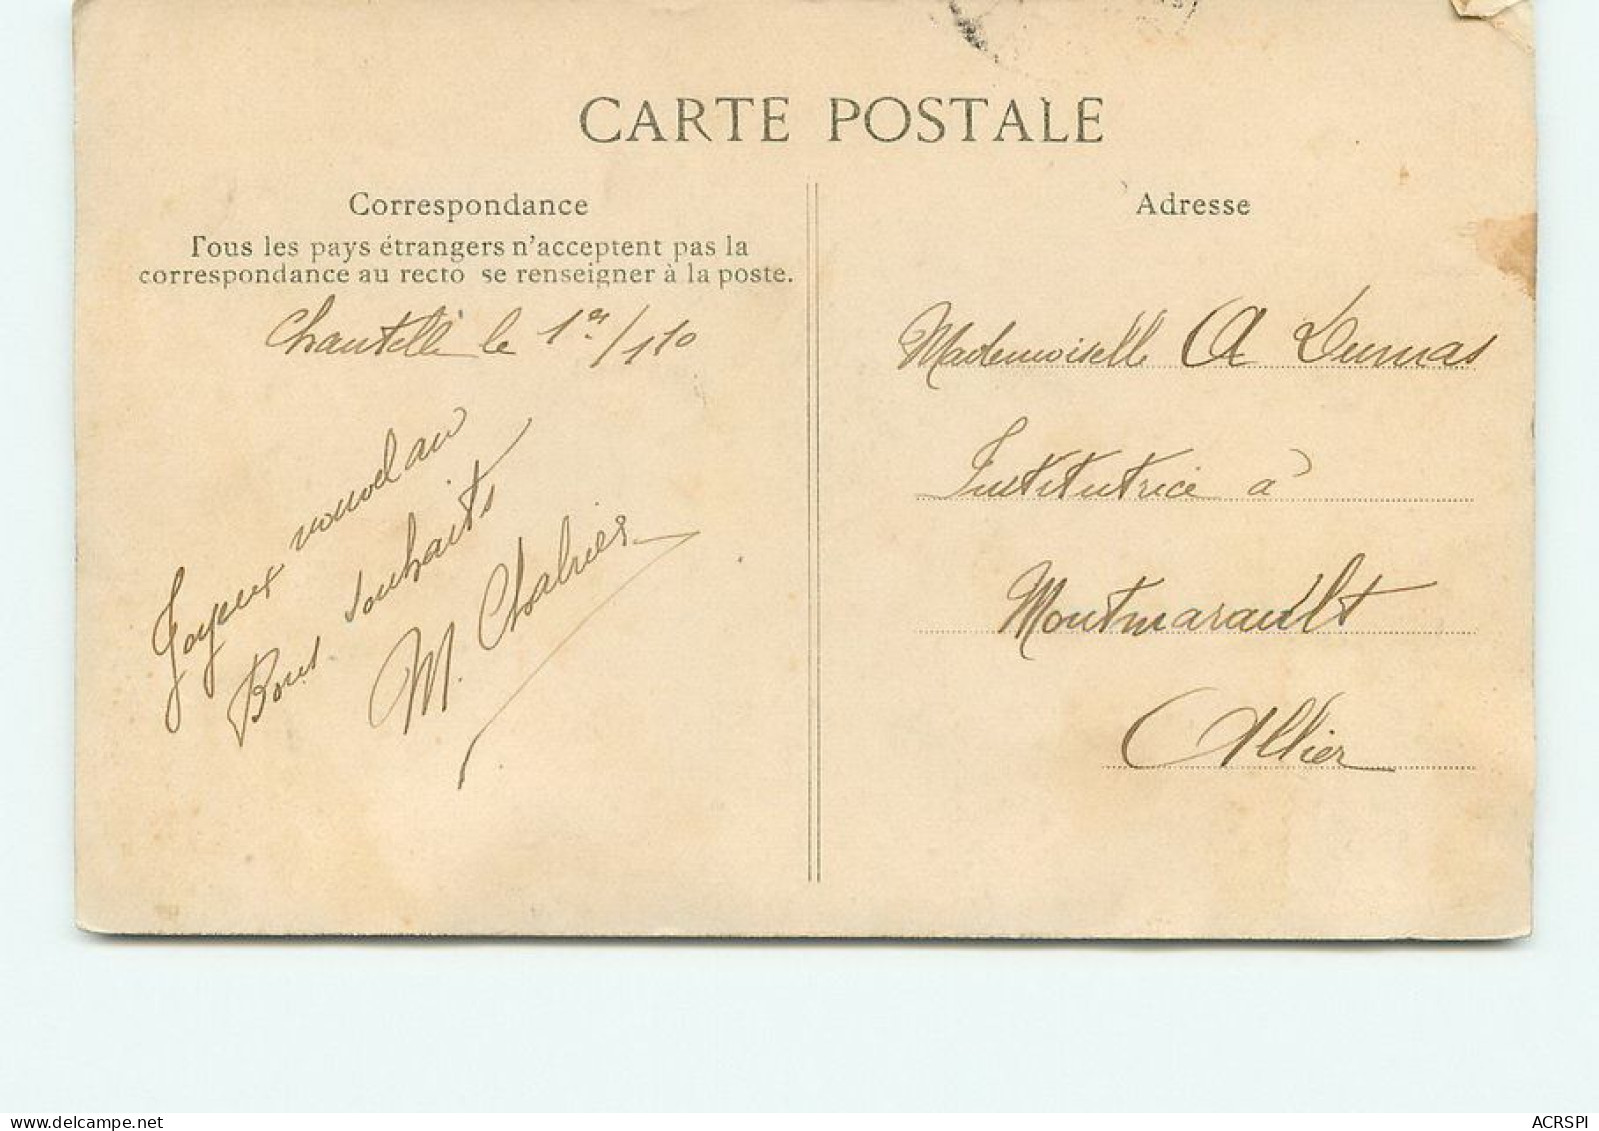 CARTE POSTALE
Correspondance
Tous les pays étrangers n'acceptent pas la
correspondance au recto se renseigner à la poste.
Chantelle le 1er/1 10
Joyeux nouvel an
Bons souhaits
M. Chabrier
Adresse
Mademoiselle A Dumas
Institutrice à
Montmarault
Allier
ACRSPI